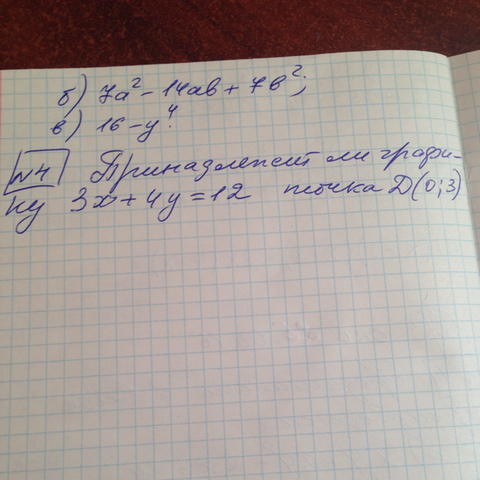 б) 7a² - 14ab + 7b²;
в) 16 - y⁴.
№4 Принадлежит ли графи-
ку 3x + 4y = 12 точка D(0;3)